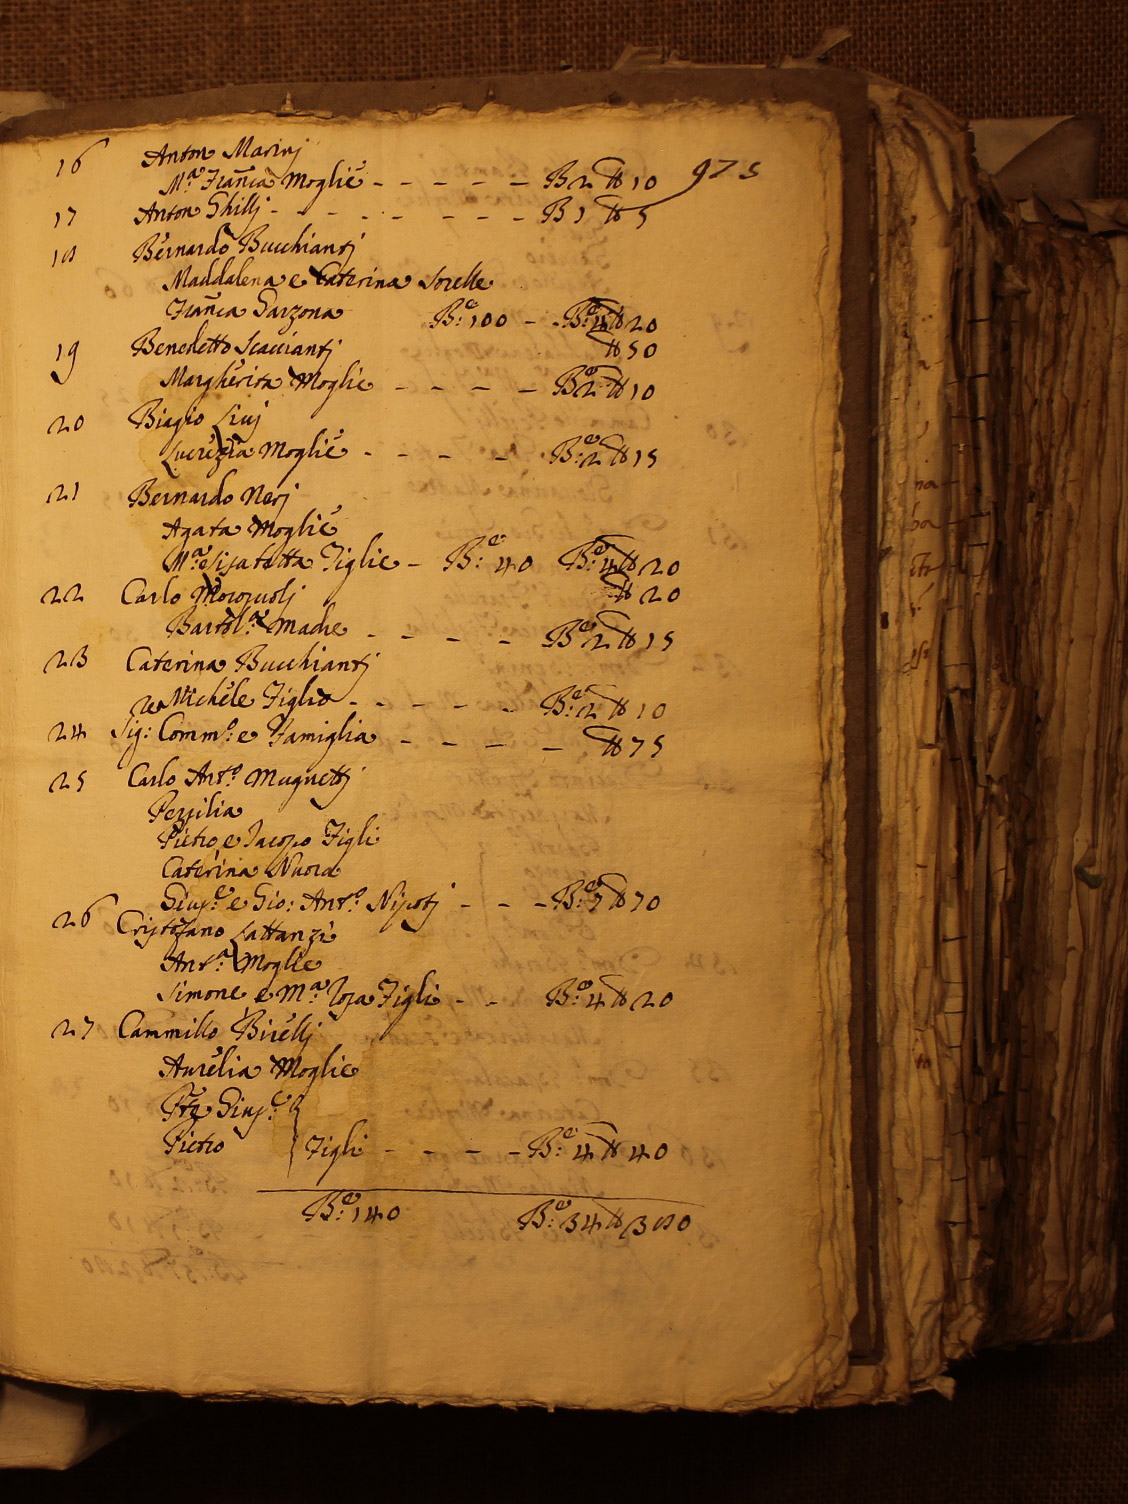 975
16 Anton Marinj
M.ª Franca Moglie - - - - - B 2 ℔ 10
17 Anton Ghillj - - - - - - - B 1 ℔ 5
18 Bernardo Bucchiantj
Maddalena e Caterina Sorelle
Franca Garzona B.e 100 - B.e 4 ℔ 20
19 Benedetto Scacciantj ℔ 50
Margherita Moglie - - - - B.e 2 ℔ 10
20 Biagio Livj
Lucrezia Moglie - - - - B.e 2 ℔ 15
21 Bernardo Nerj
Agata Moglie
M.ª Lisabetta Figlie - B.e 40 B.e 4 ℔ 20
22 Carlo ℔ 20
Bartol.ª Madre - - - - B.e 2 ℔ 15
23 Caterina Bucchiantj
e Michele Figlio - - - - - B.e 2 ℔ 10
24 Sig: Comm.o e Famiglia - - - - ℔ 75
25 Carlo Ant.o Mugnettj
Persilia
Pietro e Jacopo Figli
Caterina Nuora
Giup.e e Gio: Ant.o Nipotj - - - B.e 7 ℔ 70
26 Cristofano Lattanzi
Ant.ª Moglie
Simone e M.ª Rosa Figli - - B.e 4 ℔ 20
27 Cammillo Birellj
Aurelia Moglie
Giup.e
Pietro Figli - - - - B.e 4 ℔ 40
B.e 140 B.e 34 ℔ 380